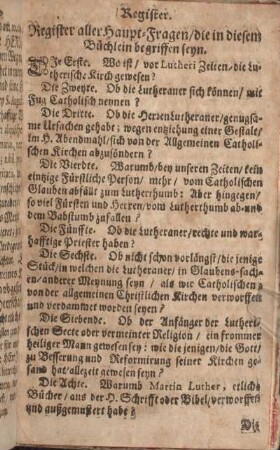 Register.
Register aller Haupt-Fragen/die in diesem
Büchlein begriffen seyn.
Die Erste. Wo ist/vor Lutheri Zeiten/die Lu-
therische Kirch gewesen?
Die Zweyte. Ob die Lutheraner sich können/mit
Fug Catholisch nennen?
Die Dritte. Ob die Herren Lutheraner/genugsa-
me Ursachen gehabt; wegen entziehung einer Gestalt/
im H. Abendmahl/sich von der Allgemeinen Catholi-
schen Kirchen abzusöndern?
Die Vierdte. Warumb/bey unseren Zeiten/kein
eintzige Fürstliche Person/mehr/vom Catholischen
Glauben abfällt zum Lutherthumb: Aber hingegen/
so viel Fürsten und Herren/vom Lutherthumb ab-und
dem Babstumb zufallen?
Die Fünffte. Ob die Lutheraner/rechte und war-
hafftige Priester haben?
Die Sechste. Ob nicht schon vorlängst/die jenige
Stück/in welchen die Lutheraner/in Glaubens-sach-
en/anderer Meynung seyn/als wir Catholischen/
von der allgemeinen Christlichen Kirchen verworffen
und verdammet worden seyen?
Die Siebende. Ob der Anfänger der Lutheri-
schen Secte oder vermeinter Religion/ein frommer
heiliger Mann gewesen sey: wie die jenigen/die Gott/
zu Besserung und Reformirung seiner Kirchen ge-
sand hat/allzeit gewesen seyn?
Die Achte. Warumb Martin Luther, etliche
Bücher/aus der H. Schrifft oder Bibel/verworffen
und außgemustert habe?
Die